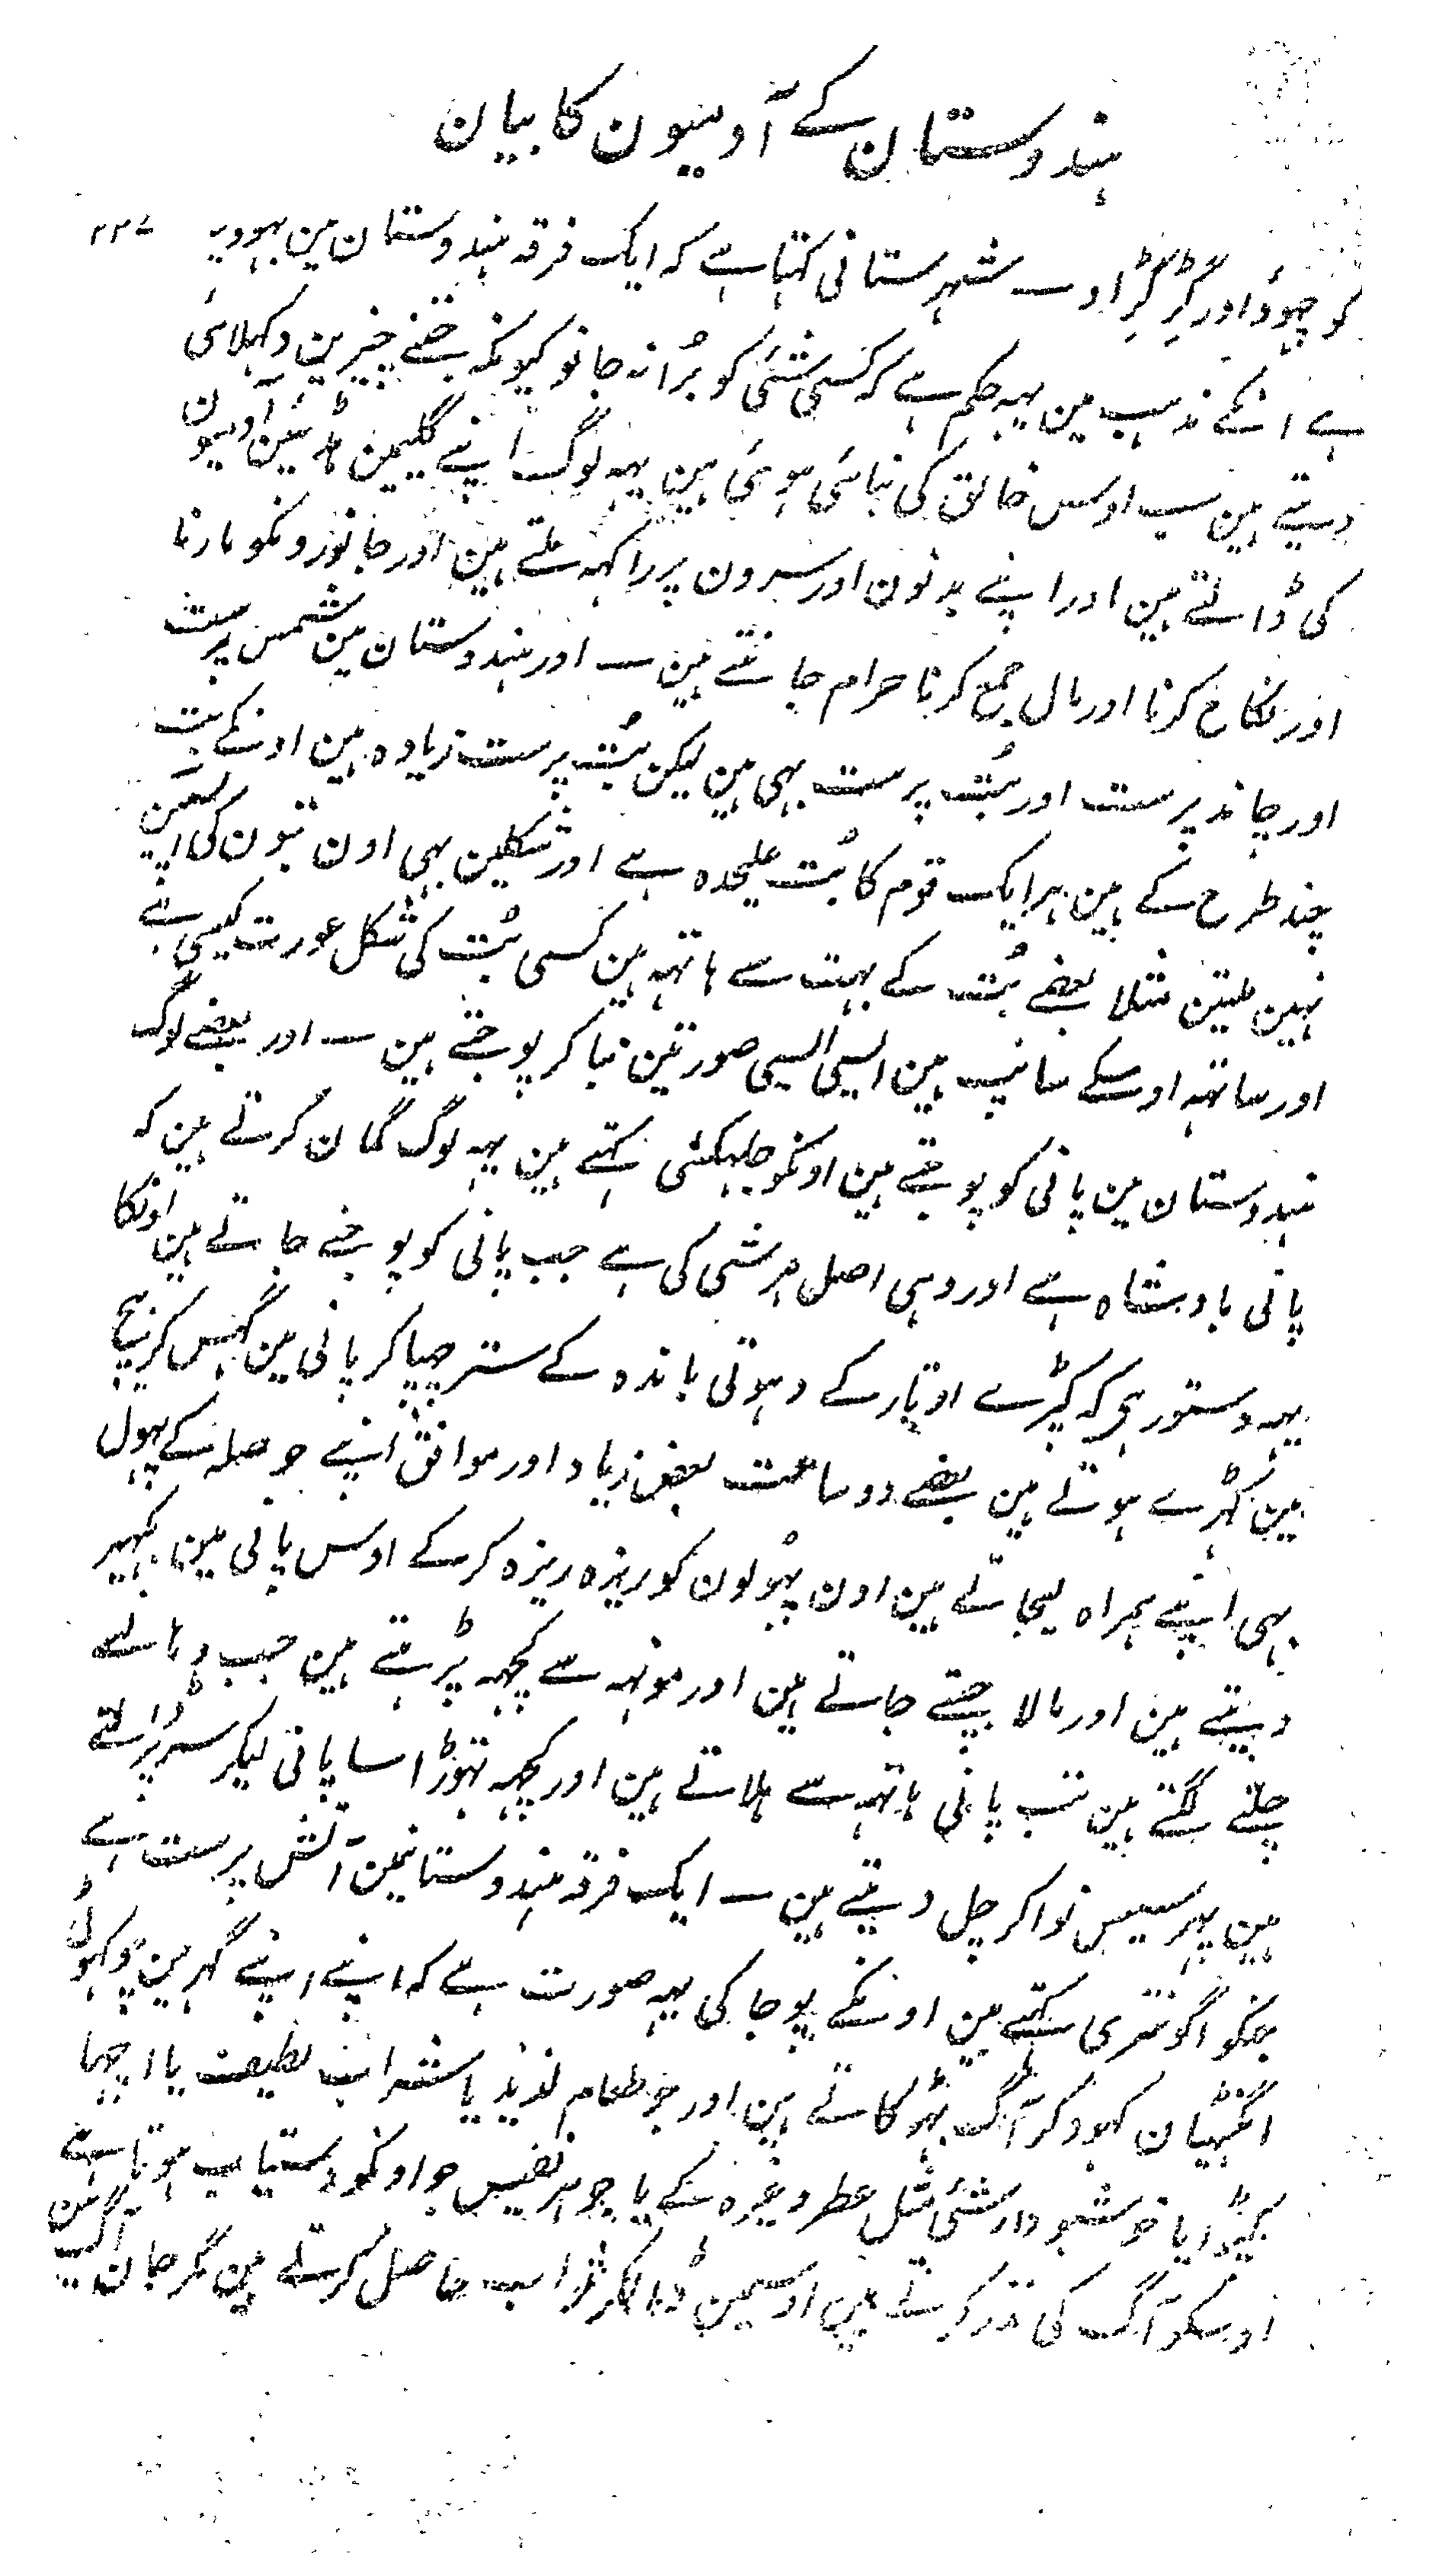 ہندوستان کے آدمیون کا بیان
۲۲۷
کو چھوڈ اور گڑگڑاو ۔ شہرستانی کہتا ہے کہ ایک فرقہ ہندوستان مین بہودیہ
ہے انکے مذہب مین یہہ حکم ہے کہ کسی شئی کو برُا نہ جانو کیونکہ جتنے چیزین دکہلائی
دیتے ہین سب اوس خالق کی بنائی ہوئی ہین یہہ لوگ اپنے گلیمین ہڈیئین آدمیون
کی ڈالتے ہین اور اپنے بدنون اور سرون پر راکہہ ملتے ہین اور جانورونکو مارنا
اور نکاح کرنا اور مال جمع کرنا حرام جانتے ہین ۔ اور ہندوستان مین شمس پرست
اور چاند پرست اور بُت پرست بہی ہین لیکن بُت پرست زیادہ ہین اونکے بت
چند طرح کے ہین ہر ایک قوم کا بُت علیحدہ ہے اور شکلین بہی اون بتون کی آپسمین
نہین ملتین مثلا بعضے بُت کے بہت سے ہاتہہ ہین کسی بُت کی شکل عورت کیسی ہے
اور ساتہہ اوسکے سانپ ہین ایسی ایسی صورتین بنا کر پوجتے ہین ۔ اور بعضے لوگ
ہندوستان مین پانی کو پوجتے ہین اونکو جلہکتی کہتے ہین یہہ لوگ گمان کرتے ہین کہ
پانی بادشاہ ہے اور وہی اصل ہر شی کی ہے جب پانی کو پوجنے جاتے ہین اونکا
یہہ دستور ہی کہ کپڑے اوتار کے دہوتی باندہ کے ستر چھپا کر پانی مین گہس کر بیچ
مین کہڑے ہوتے ہین بعضے دو ساعت بعض زیاد اور موافق اپنے حوصلہ کے پہول
بہی اپنے ہمراہ لیجاتے ہین اون پہُولون کو ریزہ ریزہ کرکے اوس پانی مین بکہیر
دیتے ہین اور مالا جپتے جاتے ہین اور مونہہ سے کچہہ پڑہتے ہین جب وہانسے
چلنے لگتے ہین تب پانی ہاتہہ سے ہلاتے ہین اور کچہہ تہوڑا سا پانی لیکر سر پر ڈالتے
ہین پہر سیس نوا کر چل دیتے ہین ۔ ایک فرقہ ہندوستانمین آتش پرست ہے
جنکو اگوتتری کہتے ہین اونکے پوجا کی یہہ صورت ہے کہ اپنے اپنے گہر مین چوکہوںٹی
انگہٹیان کہود کر آگ بہڑکاتے ہین اور جو طعام لذیذ یا شراب لطیف یا اچہا
کپڑا یا خوشبودار شئی مثل عطر وغیرہ کے یا جواہر نفیس جو اونکو دستیاب ہوتا ہے
اوسکو آگ کی نذر کرتے ہین اوسمین ڈالکر ثواب حاصل کرتے ہین مگر جان آگ مین